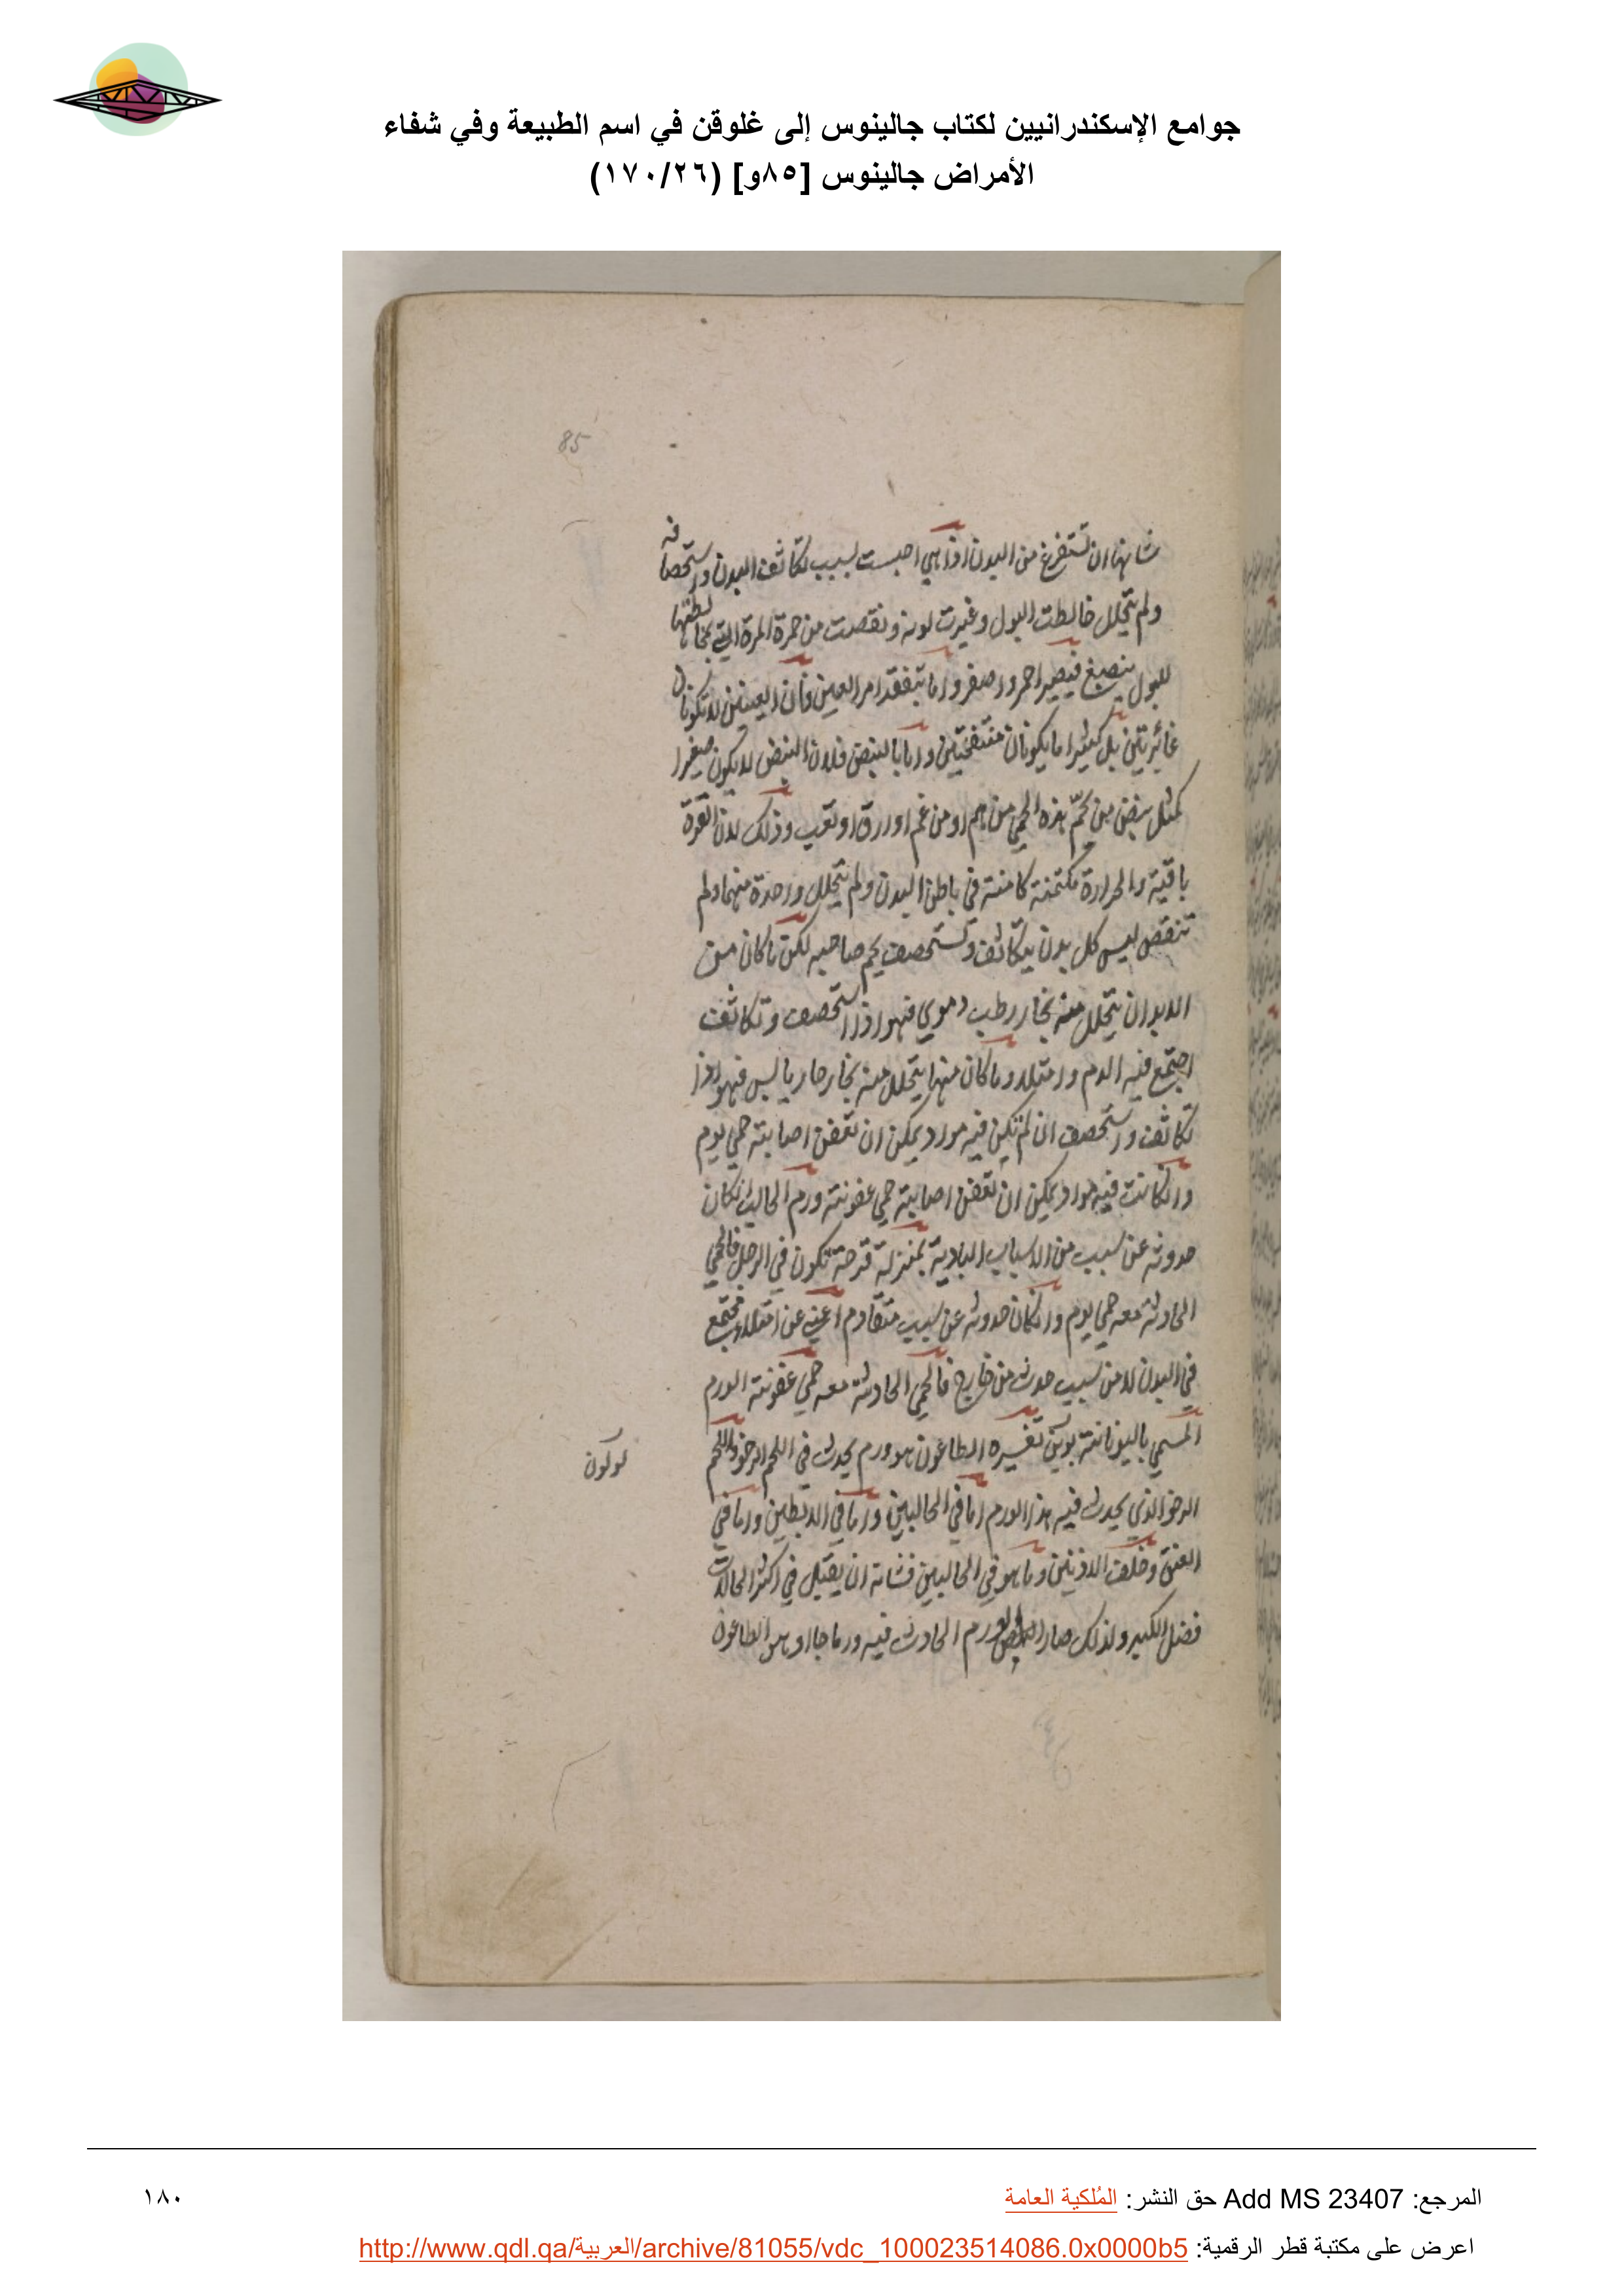 جوامع الإسكندرانيين لكتاب جالينوس إلى غلوقن في اسم الطبيعة وفي شفاء
الأمراض جالينوس [٨٥و] (١٧٠/٢٦)
85
شانها ان تستفرغ من البدن اذا هي احبست لسبب تكاثف البدن واستحصافه
ولم يتحلل خالطت البول وغيرت لونه ونقصت من حمرة المرة التي بمخالطتها
للبول ينصبغ فيصير احمر واصفر واما تفقد امر العين فان العينين لا تكونان
غائرتين بل كثيرا ما يكونان منتفختين واما بالنبض فلان النبض لا يكون صغيرا
كمثل نبض من يحم هذه الحمى من هم او من غم او ارق او تعب وذلك لان القوة
باقية والحرارة مكتمنة كامنة في باطن البدن ولم يتحلل واحدة منهما ولم
تنقص ليس كل بدن يتكاثف وتستحصف يحم صاحبه لكن ما كان من
الابدان يتحلل منه بخار رطب دموي فهو اذا استحصف وتكاثف
اجتمع فيه الدم وامتلا وما كان منها يتحلل منه بخار حار يابس فهو اذا
تكاثف واستحصف ان لم تكن فيه مواد يمكن ان تعفن اصابته حمى يوم
وان كانت فيه مواد يمكن ان تعفن اصابته حمى عفونة ورم الحالب ان كان
حدوثه عن سبب من الاسباب البادية بمنزلة قرحة تكون في الرجل فالحمى
الحادثة معه حمى يوم وان كان حدوثه عن سبب متقادم اعني عن امتلا مجتمع
في البدن لا من سبب حدث من خارج فالحمى الحادثة معه حمى عفونة الورم
المسمى باليونانية بوبن تفسيره الطاعون هو ورم يحدث في اللحم الرخو واللحم
الرخو الذي يحدث فيه هذا الورم اما في الحالبين واما في الابطين واما في
العنق وخلف الاذنين وما هو في الحالبين فشانه ان يقبل في اكثر الحالات
فضل الكبد ولذلك صار الورم الحادث فيه ورما حارا وهو الطاعون
المرجع: Add MS 23407 حق النشر: المُلكية العامة
١٨٠
اعرض على مكتبة قطر الرقمية: http://www.qdl.qa/العربية/archive/81055/vdc_100023514086.0x0000b5